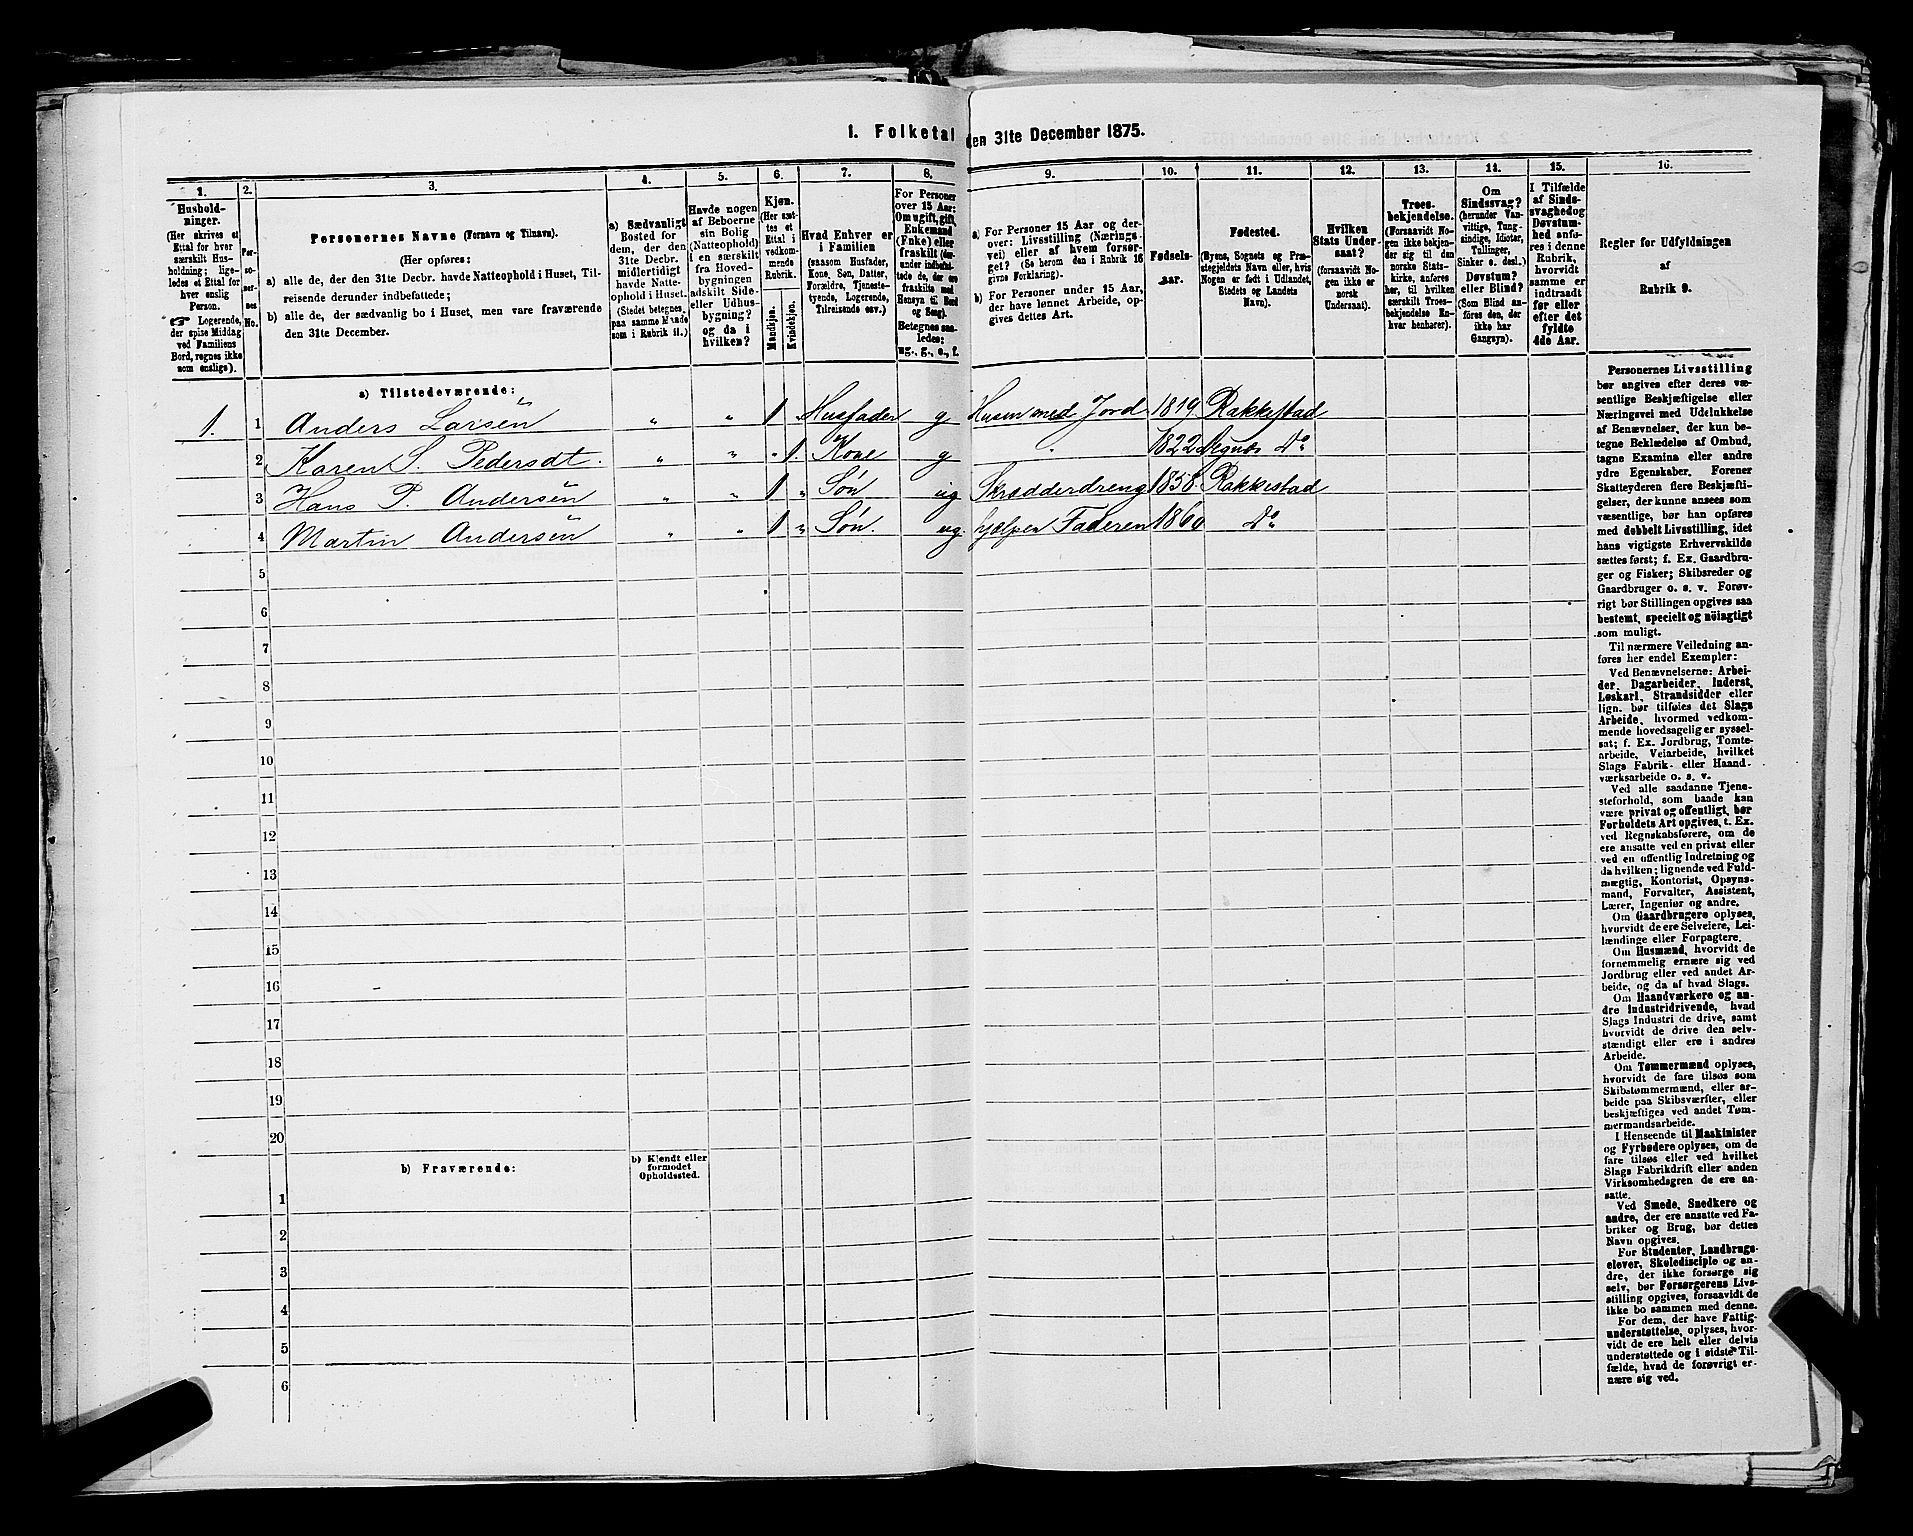 1. Folketal den 31te December 1875.
1. 2. 3. 4. 5. 6. 7. 8. 9. 10. 11. 12. 13. 14. 15. 16.
Husholdninger.
(Her skrives et
Ettal for hver
særskilt Husholdning;
ligeledes et Ettal for
hver enslig
Person.
☞ Logerende,
der spise Middag
ved Familiens
Bord, regnes ikke
som enslige).
Personernes No.
Personernes Navne (Fornavn og Tilnavn).
(Her opføres:
a) alle de, der den 31te Decbr. havde Natteophold i Huset, Tilreisende derunder indbefattede;
b) alle de, der sædvanlig bo i Huset, men vare fraværende
den 31te December.
a) Sædvanligt
Bosted for
dem, der den
31te Decbr.
midlertidigt
havde Natteophold i Huset.
(Stedet betegnes
paa samme Maade
som i Rubrik 11.)
Havde nogen
af Beboerne
sin Bolig
(Natteophold)
i en særskilt
fra Hovedbygningen
adskilt Side-
eller Udhusbygning?
og da i
hvilken?
Kjøn.
(Her sættes et
Ettal i
vedkommende
Rubrik.
Mandkjøn.
Kvindekjøn.
Hvad Enhver er
i Familien
(saasom Husfader,
Kone, Søn, Datter,
Forældre, Tjenestetyende, Logerende,
Tilreisende osv.)
For Personer
over 15 Aar:
Om ugift, gift,
Enkemand
(Enke) eller
fraskilt (derunder indbefattede de, der ere
fraskilte med
Hensyn til Bord
og Seng).
Betegnes saaledes:
ug., g., e., f.
a) For Personer 15 Aar og derover: Livsstilling (Næringsvei) eller af hvem forsørget? (Se herom den i Rubrik 16
givne Forklaring).
b) For Personer under 15 Aar,
der have lønnet Arbeide, opgives dettes Art.
Fødselsaar.
Fødested.
(Byens, Sognets og Præstegjeldets Navn eller, hvis
Nogen er født i Udlandet,
Stedets og Landets
Navn).
Hvilken
Stats Undersaat?
(forsaavidt Nogen ikke er
norsk
Undersaat).
Troesbekjendelse.
(Forsaavidt Nogen ikke bekjender sig til den
norske Statskirke, anføres
her, til hvilken
særskilt Troesbekjendelse Enhver henhører).
Om
Sindssvag?
(herunder Vanvittige, Tungsindige, Idioter,
Tullinger,
Sinker o. desl.)
Døvstum?
eller Blind?
(Som Blind anføres den, der
ikke har
Gangsyn).
I Tilfælde
af Sindssvaghed og
Døvstumhed anføres i denne
Rubrik,
hvorvidt
samme er
indtraadt
før eller
efter det
fyldte
4de Aar.
Regler for Udfyldningen
af
Rubrik 9.
a) Tilstedeværende:
1. 1 Anders Larsen „ „ 1 „ Husfader g Husm med Jord 1819 Rakkestad
2 Karen S. Pedersdt. „ „ „ 1. Kone g „ 1822 Do
3 Hans P. Andersen „ „ 1 „ Søn ug Skrædderdreng 1858 Rakkestad
4 Martin Andersen „ „ 1 „ Søn. ug. hjælper Faderen 1860 Do
5
6
7
8
9
10
11
12
13
14
15
16
17
18
19
20
b) Fraværende:
b) Kjendt eller
formodet
Opholdssted.
1
2
3
4
5
6
Personernes Livsstilling
bør angives efter deres væsentlige Beskjæftigelse eller
Næringsvei med Udelukkelse
af Benævnelser, der kun betegne Beklædelse af Ombud,
tagne Examina eller andre
ydre Egenskaber. Forener
Skatteyderen flere Beskjæftigelser, der kunne ansees som
væsentlige, bør han opføres
med dobbelt Livsstilling, idet
hans vigtigste Erhvervskilde
sættes først; f. Ex. Gaardbruger og Fisker; Skibsreder og
Gaardbruger o. s. v. Forøvrigt bør Stillingen opgives saa
bestemt, specielt og nöiagtigt
som muligt.
Til nærmere Veiledning anføres her endel Exempler:
Ved Benævnelserne: Arbeider, Dagarbeider, Inderst,
Løskarl, Strandsidder eller
lign. bør tilføies det Slags
Arbeide, hvormed vedkommende hovedsagelig er sysselsat; f. Ex. Jordbrug, Tomtearbeide, Veiarbeide, hvilket
Slags Fabrik- eller Haandværksarbeide o. s. v.
Ved alle saadanne Tjenesteforhold, som baade kan
være privat og offentligt, bør
Forholdets Art opgives, t. Ex.
ved Regnskabsførere, om de
ere ansatte ved en privat eller
ved en offentlig Indretning og
da hvilken; lignende ved Fuldmægtig, Kontorist, Opsynsmand, Forvalter, Assistent,
Lærer, Ingeniør og andre.
Om Gaardbrugere oplyses,
hvorvidt de ere Selveiere, Leilændinge eller Forpagtere.
Om Husmænd, hvorvidt de
fornemmelig ernære sig ved
Jordbrug eller ved andet Arbeide, og da af hvad Slags.
Om Haandværkere og andre Industridrivende, hvad
Slags Industri de drive, samt
hvorvidt de drive den selvstændigt eller ere i andres
Arbeide.
Om Tømmermænd oplyses,
hvorvidt de fare tilsøs som
Skibstømmermænd, eller arbeide paa Skibsværfter, eller
beskjæftiges ved andet Tømmermandsarbeide.
I Henseende til Maskinister
og Fyrbødere oplyses, om de
fare tilsøs eller ved hvilket
Slags Fabrikdrift eller anden
Virksomhedsgren de ere ansatte.
Ved Smede, Snedkere og
andre, der ere ansatte ved Fabriker og Brug, bør dettes
Navn opgives.
For Studenter, Landbrugselever, Skoledisciple og andre, der ikke forsørge sig
selv, bør Forsørgerens Livsstilling opgives, forsaavidt de
ikke bo sammen med denne.
For dem, der have Fattigunderstøttelse, oplyses, hvorvidt de ere helt eller delvis
understøttede og i sidste Tilfælde, hvad de forøvrigt ernære sig ved.